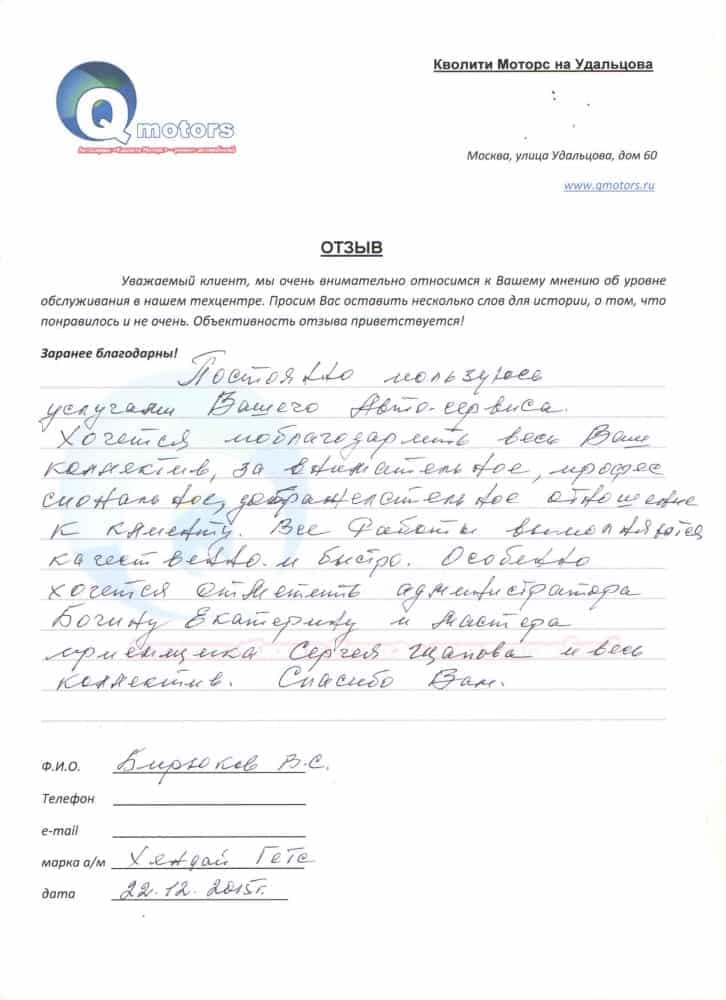 Кволити Моторс на Удальцова
Q motors
Автосервис «Кволити Моторс» - ремонт автомобилей
Москва, улица Удальцова, дом 60
www.qmotors.ru
ОТЗЫВ
Уважаемый клиент, мы очень внимательно относимся к Вашему мнению об уровне
обслуживания в нашем техцентре. Просим Вас оставить несколько слов для истории, о том, что
понравилось и не очень. Объективность отзыва приветствуется!
Заранее благодарны!
Постоянно пользуюсь
услугами Вашего Авто-сервиса.
Хочется поблагодарить весь Ваш
коллектив, за внимательное, профес
сиональное, доброжелательное отношение
к клиенту. Все работы выполняются
качественно и быстро. Особенно
хочется отметить администратора
Богину Екатерину и мастера
приемщика Сергея Щапова и весь
коллектив. Спасибо Вам.
Ф.И.О. Бирюков В.С.
Телефон
e-mail
марка а/м Хендай Гетс
дата 22.12.2015г.